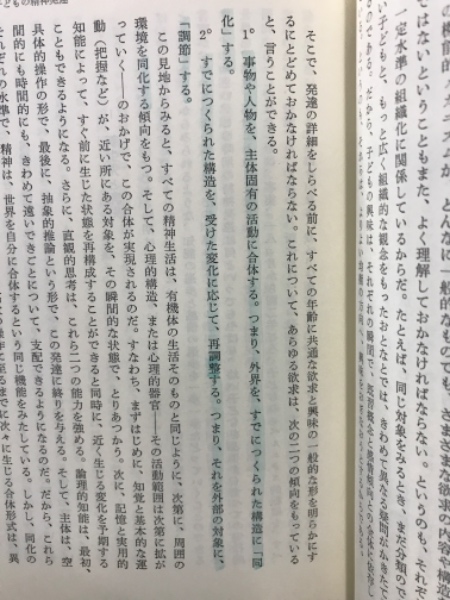 どもの精神発達
の機能的
ではないということもまた、よく理解しておかなければならない。というのも、それぞ
一定水準の組織化に関係しているからだ。たとえば、同じ対象をみるとき、まだ分類ので
い子どもと、もっと広く組織的な観念をもったおとなとでは、きわめて異なる疑問がかきたて
そこで、発達の詳細をしらべる前に、すべての年齢に共通な欲求と興味の一般的な形を明らかにす
るにとどめておかなければならない。これについて、あらゆる欲求は、次の二つの傾向をもっている
と、言うことができる。
1° 事物や人物を、主体固有の活動に合体する。つまり、外界を、すでにつくられた構造に「同
化」する。
2° すでにつくられた構造を、受けた変化に応じて、再調整する。つまり、それを外部の対象に、
「調節」する。
この見地からみると、すべての精神生活は、有機体の生活そのものと同じように、次第に、周囲の
環境を同化する傾向をもつ。そして、心理的構造、または心理的器官――その活動範囲は次第に拡が
っていく――のおかげで、この合体が実現されるのだ。すなわち、まずはじめに、知覚と基本的な運
動(把握など)が、近い所にある対象を、その瞬間的な状態で、とりあつかう。次に、記憶と実用的
知能によって、すぐ前に生じた状態を再構成することができると同時に、近く生じる変化を予期する
こともできるようになる。さらに、直観的思考は、これら二つの能力を強める。論理的知能は、最初、
具体的操作の形で、最後に、抽象的推論という形で、この発達に終りを与える。そして、主体は、空
間的にも時間的にも、きわめて遠いできごとについて、支配できるようになるのだ。だから、これら
それぞれの水準で、精神は、世界を自分に合体するという同じ機能をみたしている。しかし、同化の
操作に至るまでに次々に生じる合体形式は、異